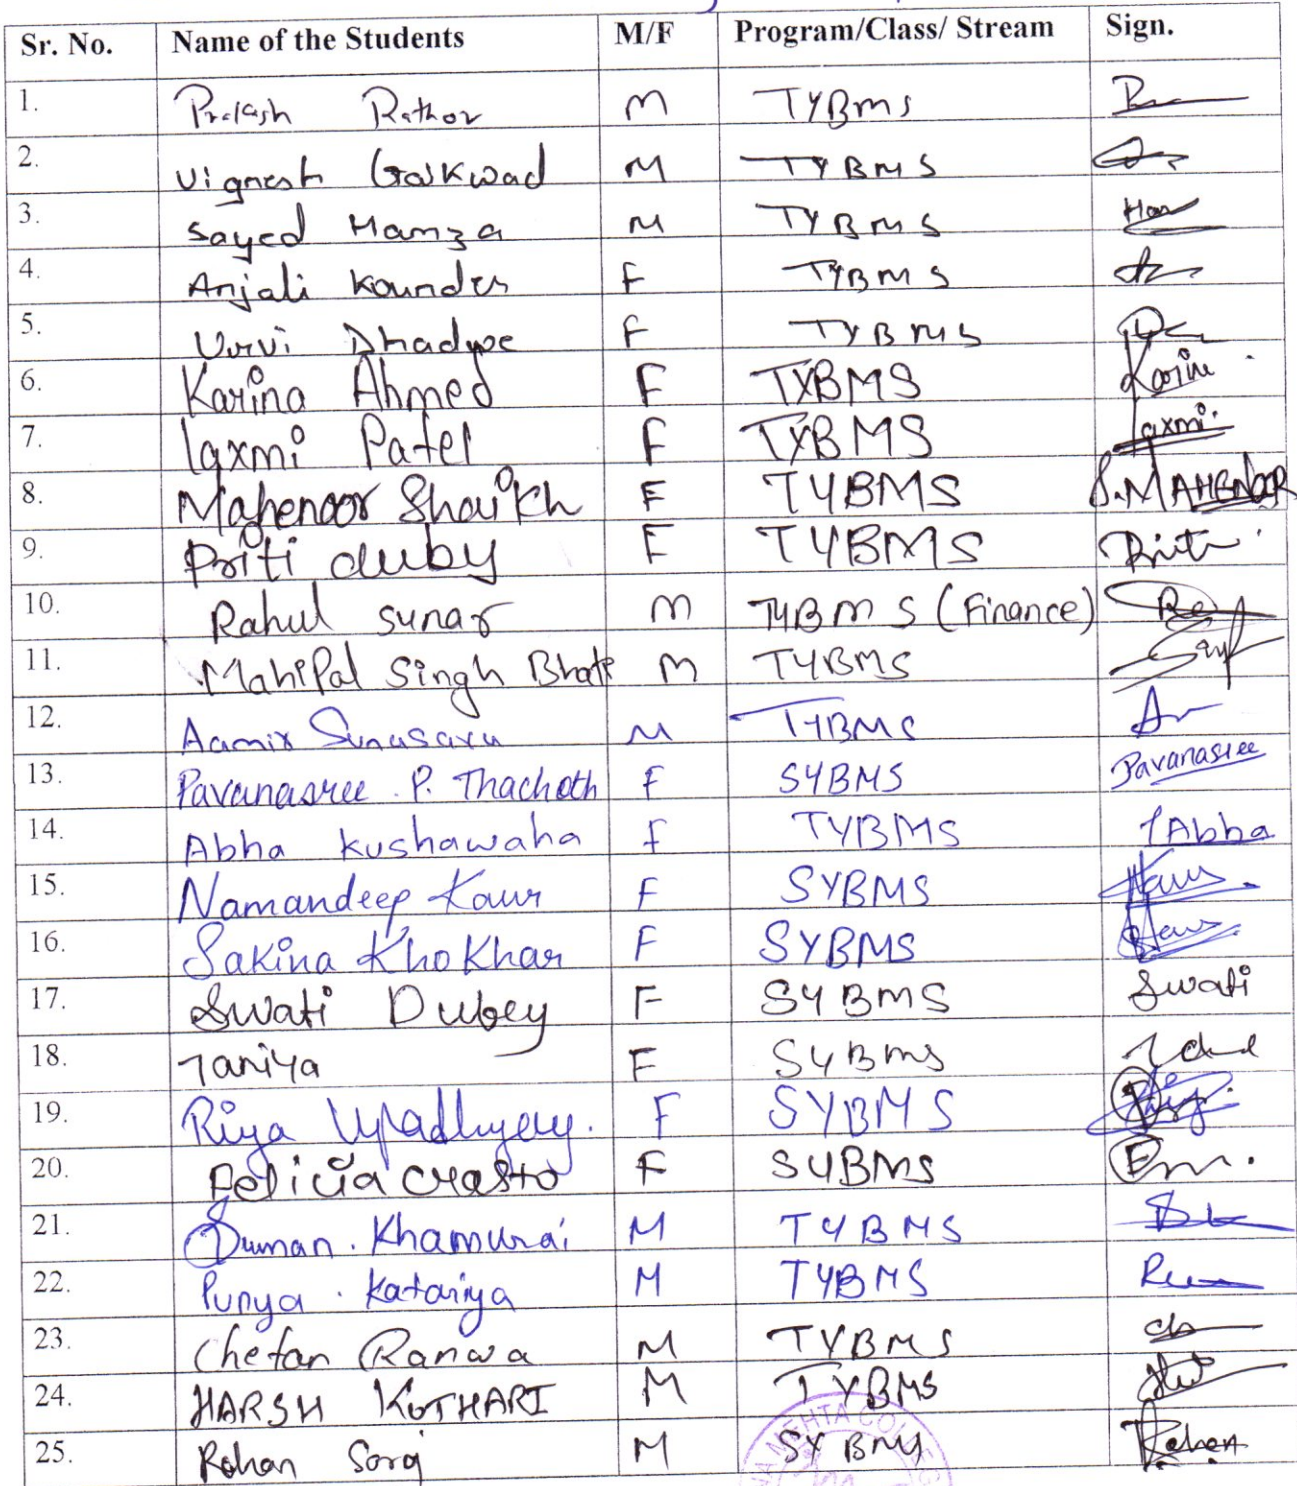 Sr. No. Name of the Students M/F Program/Class/ Stream Sign.
1. Prakash Rathor M TYBMS
2. Vignesh Gaikwad M TYBMS
3. Sayed Hamza M TYBMS
4. Anjali Kounder F TYBMS
5. Urvi F TYBMS
6. Karina Ahmed F TYBMS Karina
7. laxmi Patel F TYBMS laxmi.
8. Mahenoor Shaikh F TYBMS S.MAHENOOR
9. Priti duby F TYBMS Priti
10. Rahul sunar M TYBMS (Finance)
11. Mahipal Singh Bhati M TYBMS
12. Aamir Sunasara M TYBMS
13. Pavanasree . P. Thachoth F SYBMS Pavanasree
14. Abha kushawaha F TYBMS Abha
15. Namandeep Kaur F SYBMS
16. Sakina Khokhar F SYBMS
17. Swati Dubey F SYBMS Swati
18. Taniya F SYBMS
19. Riya Upadhyay. F SYBMS
20. Felicia crasto F SYBMS
21. Suman . Khamurai M TYBMS
22. Punya . Katariya M TYBMS
23. Chetan Ranwa M TYBMS
24. HARSH KOTHARI M TYBMS
25. Rohan M SYBMS Rohan
MEHTA COLLEG